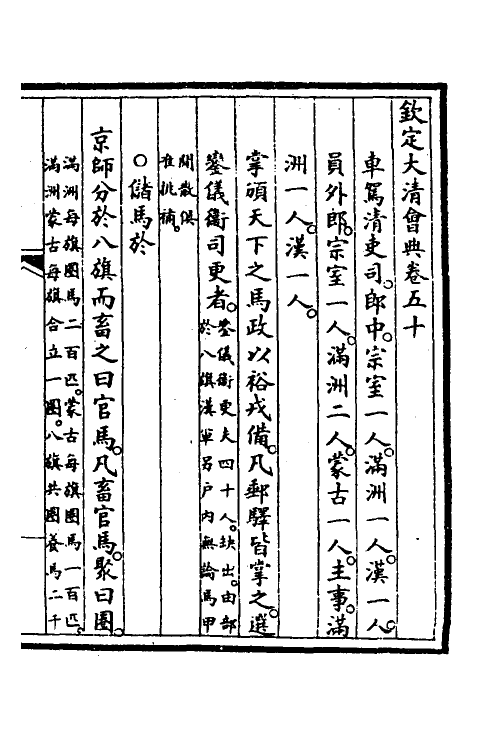 欽定大清會典卷五十
車駕清吏司。郎中。宗室一人。滿洲一人。漢一人。
員外郎。宗室一人。滿洲二人。蒙古一人。主事。滿
洲一人。漢一人。
掌頒天下之馬政。以裕戎備。凡郵驛皆掌之。選
鑾儀衛司更者。鑾儀衛更夫四十人。缺出。由部
於八旗漢軍另戶內無論馬甲
閒散俱
准挑補。
○儲馬於
京師分於八旗而畜之曰官馬。凡畜官馬。聚曰圈。
滿洲每旗圈馬二百匹。蒙古每旗圈馬一百匹。
滿洲蒙古每旗合立一圈。八旗共圈養馬二千